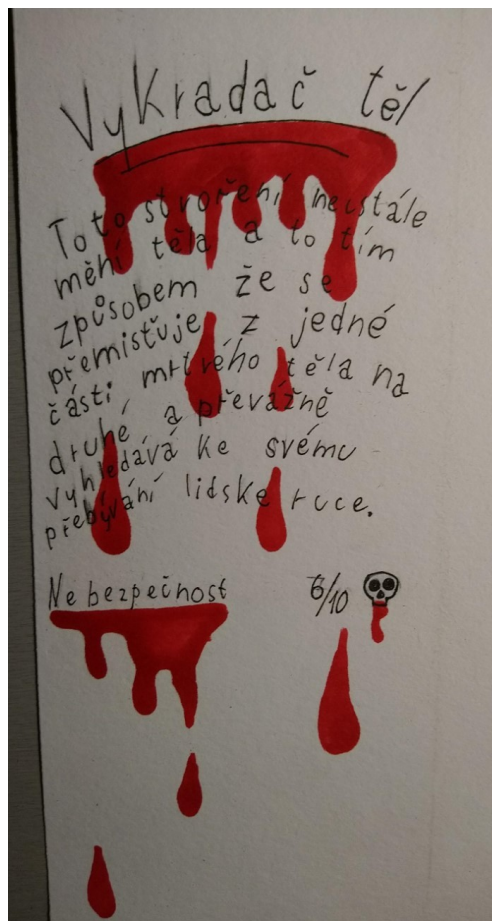 Vykradač těl
Toto stvoření neustále
mění těla a to tím
způsobem že se
přemisťuje z jedné
části mrtvého těla na
druhé a převážně
vyhledává ke svému
přebývání lidské ruce.
Nebezpečnost 6/10